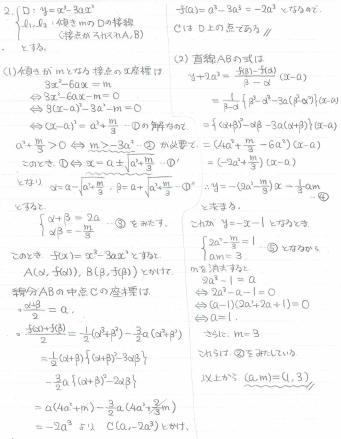 2. { D: y=x³-3ax²
l₁,l₂ : 傾きmのDの接線
(接点がそれぞれA,B)
とする。
(1) 傾きがmとなる接点のx座標は
3x²-6ax=m
⇔ 3x²-6ax-m=0
⇔ 3(x-a)²-3a²-m=0
⇔ (x-a)²=a²+m/3 …① の解なので
a²+m/3>0 ⇔ m>-3a² …② が必要で、
このとき、① ⇔ x=a±√(a²+m/3) …①'
となり α=a-√(a²+m/3), β=a+√(a²+m/3) …①''
とすると
{ α+β=2a
αβ=-m/3 …③ をみたす。
このとき f(x)=x³-3ax²とすると
A(α, f(α)), B(β, f(β))とかけて、
線分ABの中点Cの座標は
・(α+β)/2=a.
・(f(α)+f(β))/2=1/2(α³+β³)-3/2a(α²+β²)
=1/2(α+β){(α+β)²-3αβ}
-3/2a{(α+β)²-2αβ}
=a(4a²+m)-3/2a(4a²+2/3m)
=-2a³ より C(a,-2a³)とかけ、
f(a)=a³-3a³=-2a³となるので、
CはD上の点である
(2) 直線ABの式は
y+2a³=(f(β)-f(α))/(β-α)(x-a)
=1/(β-α){β³-α³-3a(β²-α²)}(x-a)
={(α+β)²-αβ-3a(α+β)}(x-a)
=(4a²+m/3-6a²)(x-a)
=(-2a²+m/3)(x-a)
∴y=-(2a²-m/3)x-1/3am …④
と求まる。
これが y=-x-1となるとき、
{ 2a²-m/3=1
am=3 …⑤ となるから
mを消去すると
2a³-1=a
⇔ 2a³-a-1=0
⇔ (a-1)(2a²+2a+1)=0
⇔ a=1.
さらに、m=3
これらは、②をみたしている
以上から (a,m)=(1,3)